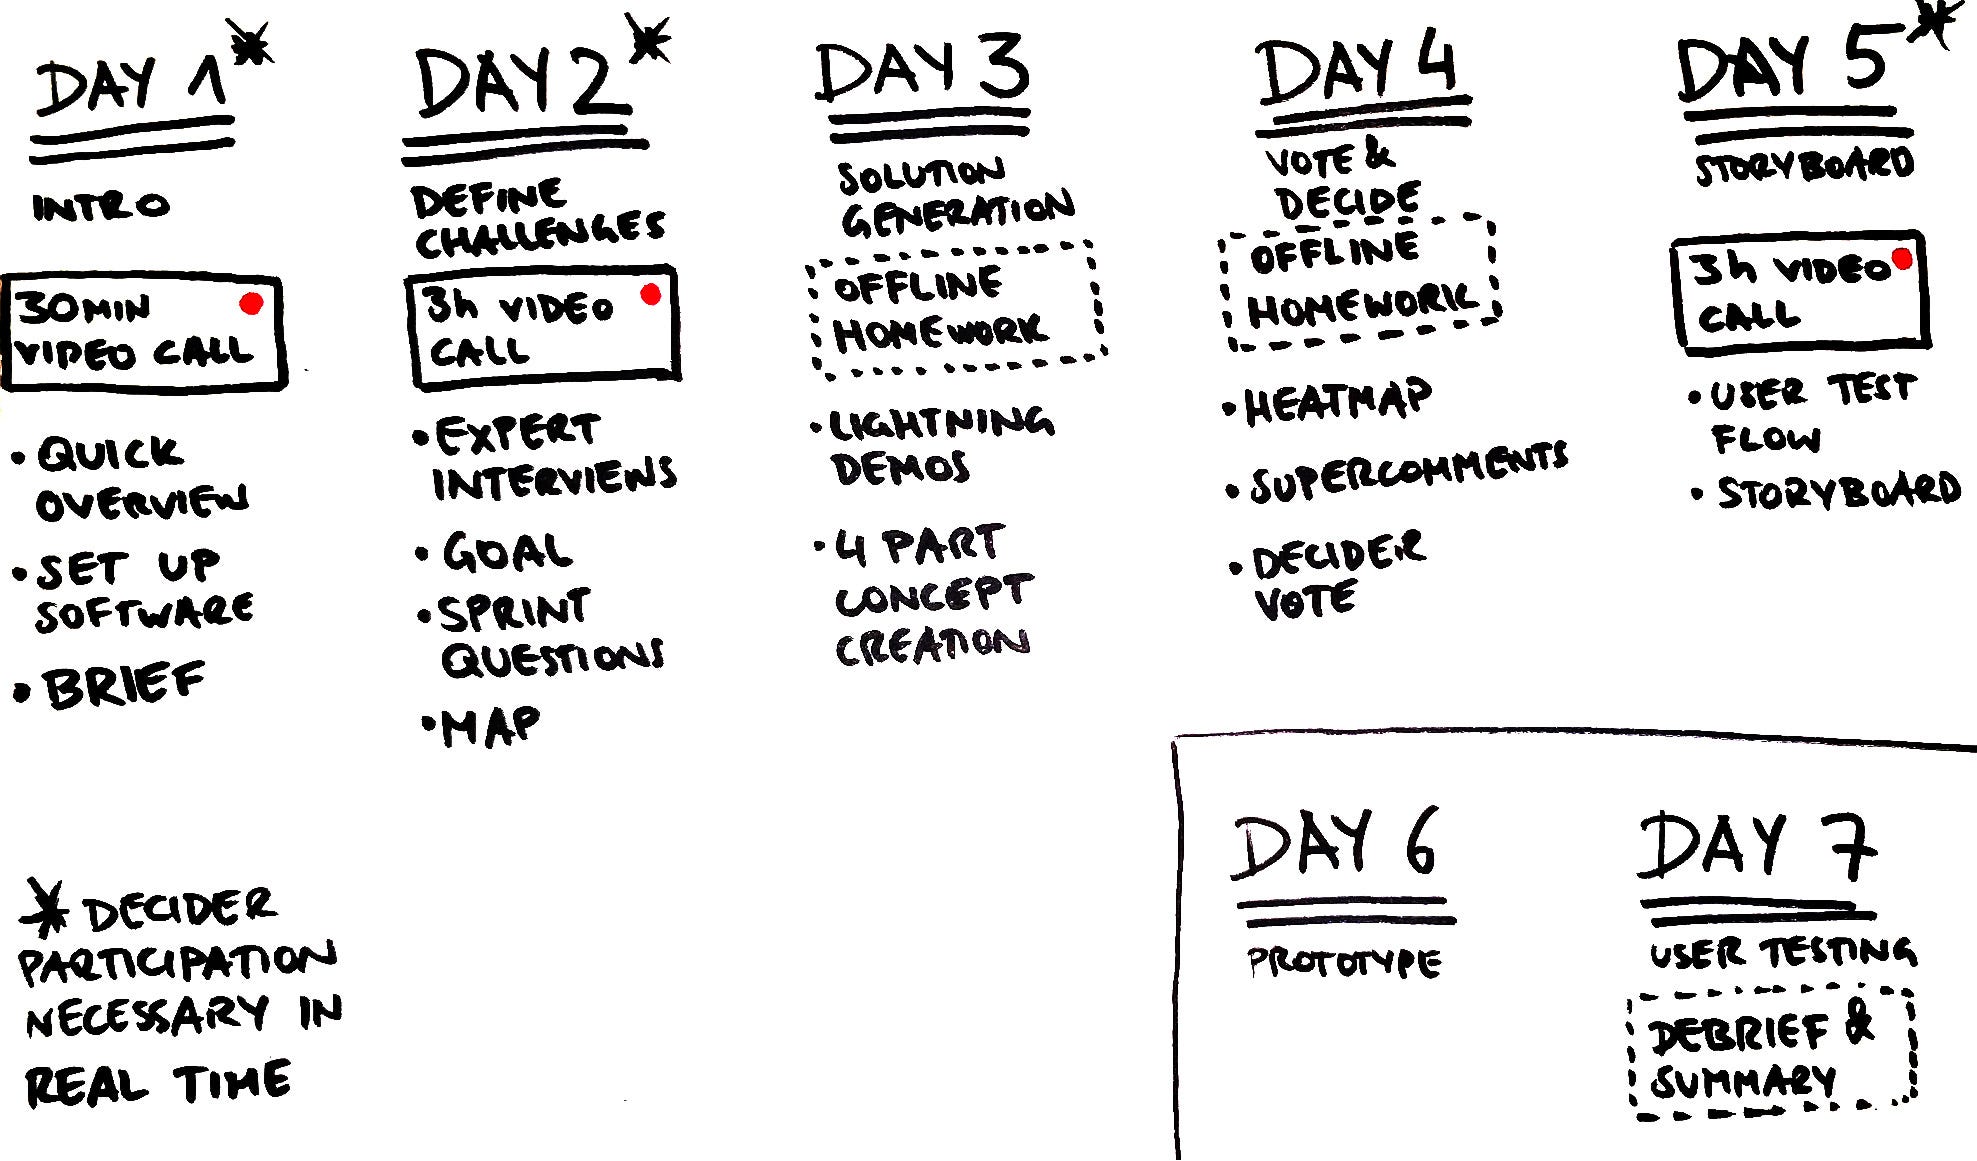 DAY 1*
INTRO
30MIN
VIDEO CALL
• QUICK
OVERVIEW
• SET UP
SOFTWARE
• BRIEF
DAY 2*
DEFINE
CHALLENGES
3h VIDEO
CALL
• EXPERT
INTERVIEWS
• GOAL
• SPRINT
QUESTIONS
• MAP
DAY 3
SOLUTION
GENERATION
OFFLINE
HOMEWORK
• LIGHTNING
DEMOS
• 4 PART
CONCEPT
CREATION
DAY 4
VOTE &
DECIDE
OFFLINE
HOMEWORK
• HEATMAP
• SUPERCOMMENTS
• DECIDER
VOTE
DAY 5*
STORYBOARD
3h VIDEO
CALL
• USER TEST
FLOW
• STORYBOARD
* DECIDER
PARTICIPATION
NECESSARY IN
REAL TIME
DAY 6
PROTOTYPE
DAY 7
USER TESTING
DEBRIEF &
SUMMARY